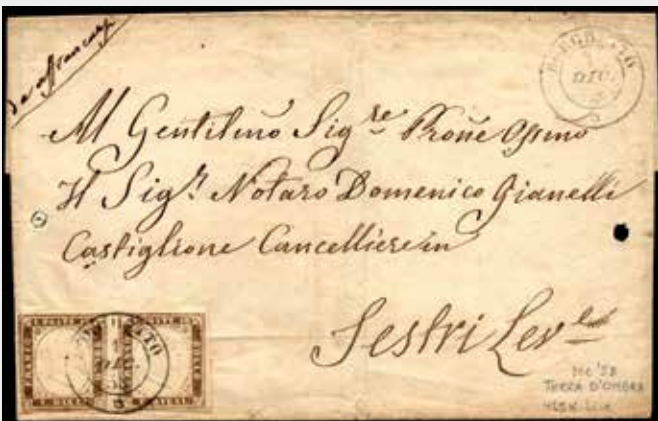 da affrancarsi
BORGHETTO
DIC.
Al Gentilmo Sigre Prone Ossmo
Il Sigr Notaro Domenico Gianelli
Castiglione Cancelliere in
Sestri Levte
DIC.
DIC '58
TERRA D'OMBRA